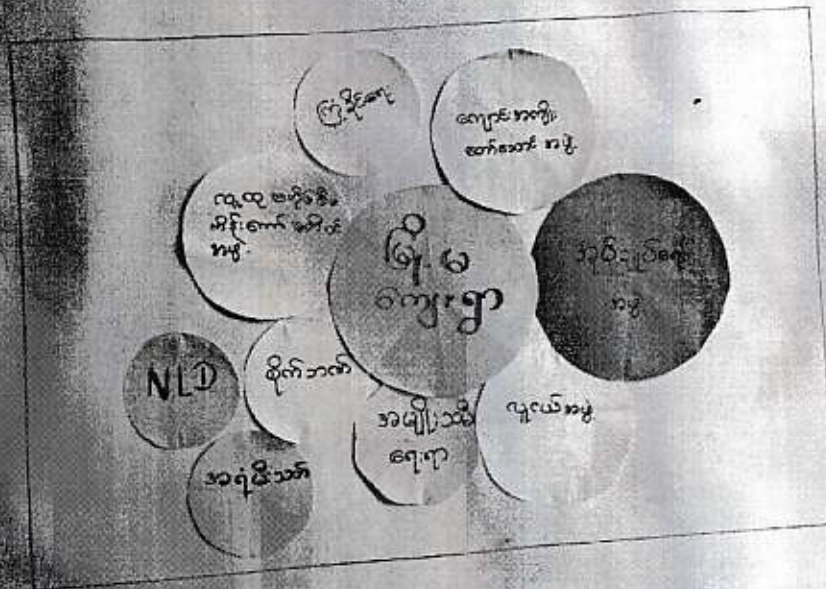 ကြံ့ခိုင်ရေး
ကျောင်းအကျိုး
တော်ဆောင် အဖွဲ့
အဖွဲ့
မြို့မ
ကျေးရွာ
အုပ်ချုပ်ရေး
အဖွဲ့
NLD
စိုက်ဘဏ်
အမျိုးသမီး
ရေးရာ
လူငယ်အဖွဲ့
အရံမီးသတ်